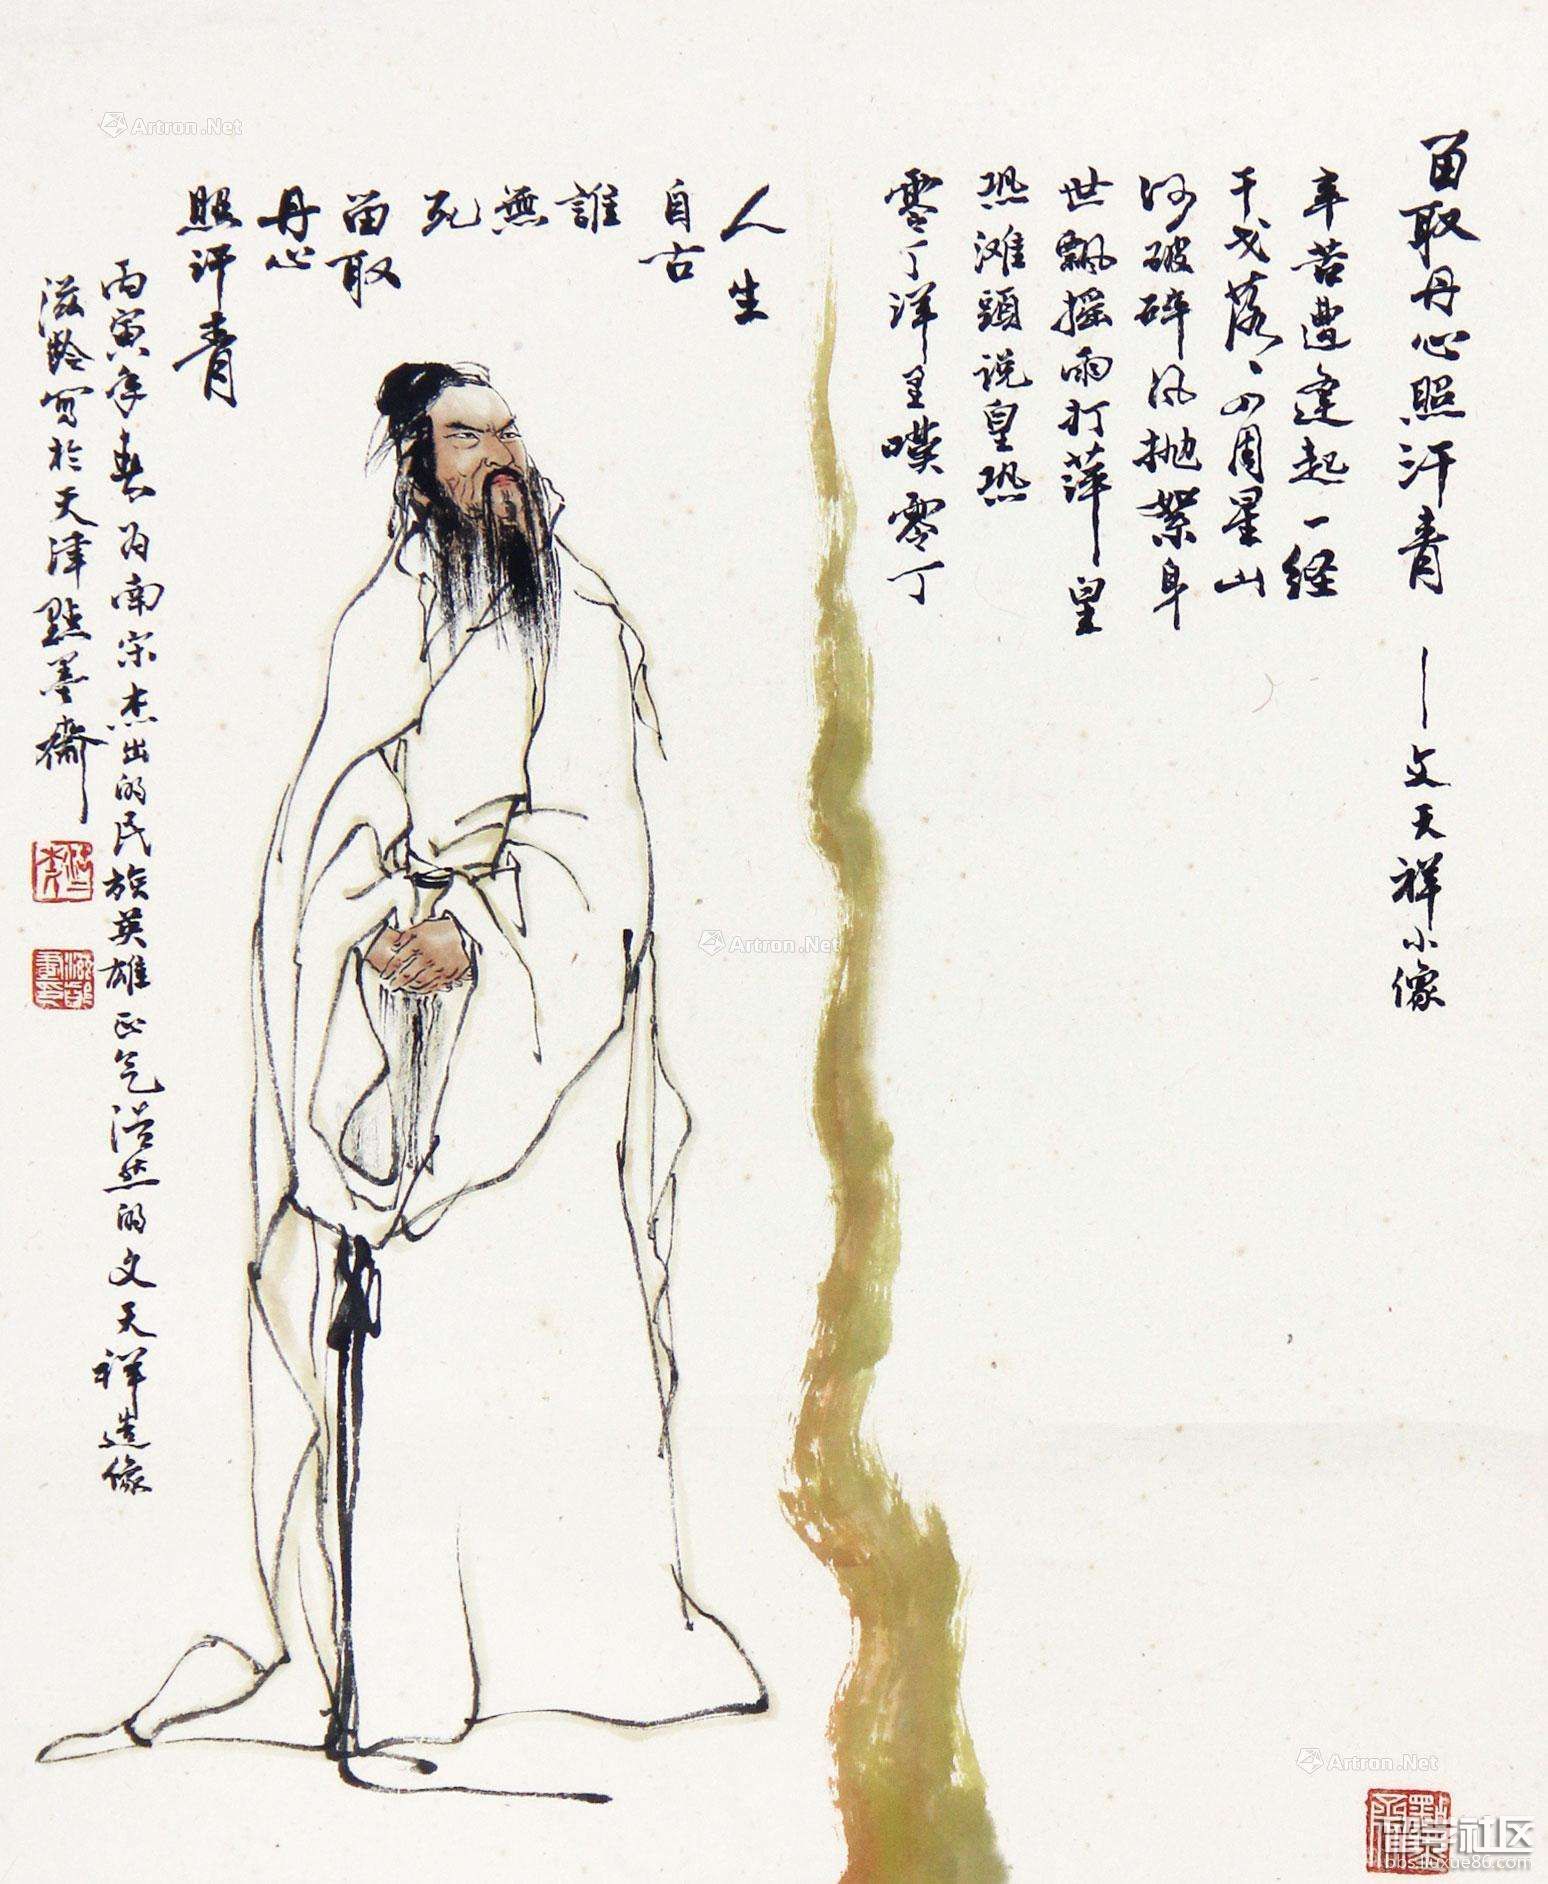 留取丹心照汗青——文天祥小像
辛苦遭逢起一经
干戈落落四周星山
河破碎风抛絮身
世飘摇雨打萍皇
恐滩頭说皇恐
零丁洋里嘆零丁
人生
自古
誰
無
死
留取
丹心
照汗青
丙寅年春为南宋杰出的民族英雄正气浩然的文天祥造像
滋龄写於天津點墨齋
Artron.Net
Artron.Net
Artron.Net
bbs.liuxue86.com